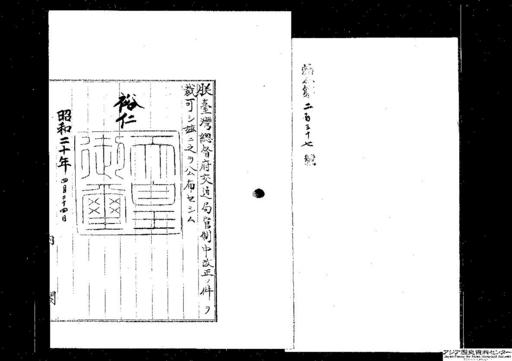 勅令第二百三十七號
朕臺灣總督府交通局官制中改正ノ件ヲ
裁可シ茲ニ之ヲ公布セシム
裕仁
天皇御璽
昭和二十年四月二十四日
内閣
アジア歴史資料センター